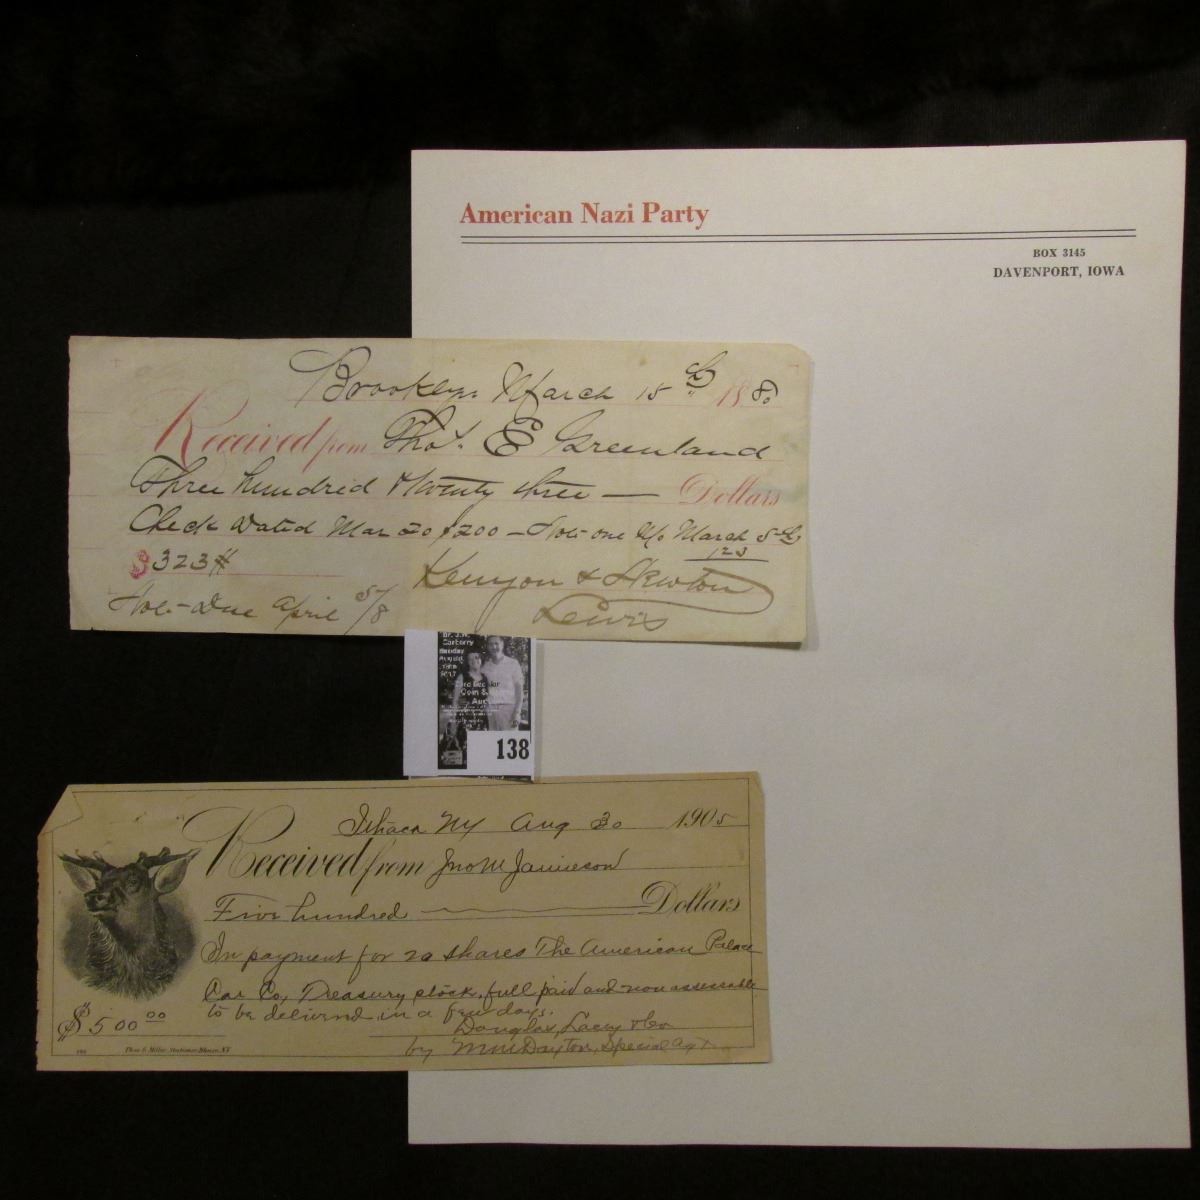 American Nazi Party
BOX 3145
DAVENPORT, IOWA
Brooklyn March 15th 1880
Received from Thos. E Greenland
Three hundred & twenty three — Dollars
Check dated Mar 20 $200 – Note one Mo March 5th
123
$323#
Kenyon & Newton
Note Due April 5/8
Lewis
Dr. J.W.
Carberry
Sunday
August
Coin &
138
Ithaca NY Aug 30 1905
Received from Jno M Jamieson
Five hundred — Dollars
In payment for 20 shares The American Palace
Car Co, Treasury stock, full paid and non assessable
to be delivered in a few days.
$500 00
Douglas, Lacey & Co
by Dayton, Special Agt